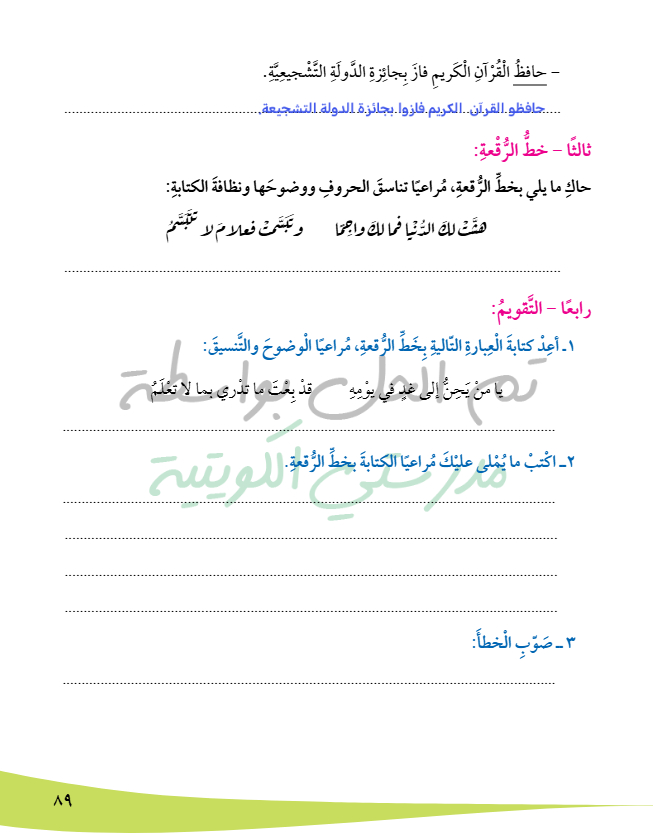 – حافظُ الْقُرْآنِ الْكَريمِ فازَ بِجائِزةِ الدَّولَةِ التَّشْجيعِيَّةِ.
حافظو القرآن الكريم فازوا بجائزة الدولة التشجيعة.
ثالثًا – خطُّ الرُّقْعةِ:
حاكِ ما يلي بخطِّ الرُّقعةِ، مُراعيًا تناسقَ الحروفِ ووضوحَها ونظافةَ الكتابةِ:
هشَّتْ لكَ الدُّنْيا فما لكَ واجِمًا وتبَسَّمتْ فعلامَ لا تتَبَسَّمُ
رابعًا – التَّقويمُ:
١ـ أعِدْ كتابةَ الْعِبارةِ التّاليةِ بِخَطِّ الرُّقعةِ، مُراعيًا الْوضوحَ والتَّنسيقَ:
تم الحل بواسطة
يا منْ يَحِنُّ إلى غدٍ في يوْمِهِ قدْ بِعْتَ ما تدْري بما لا تعْلَمُ
مدرستي الكويتية
٢ـ اكْتبْ ما يُمْلى عليْكَ مُراعيًا الكتابةَ بخطِّ الرُّقعةِ.
٣ ـ صَوِّبِ الْخطأَ:
٨٩